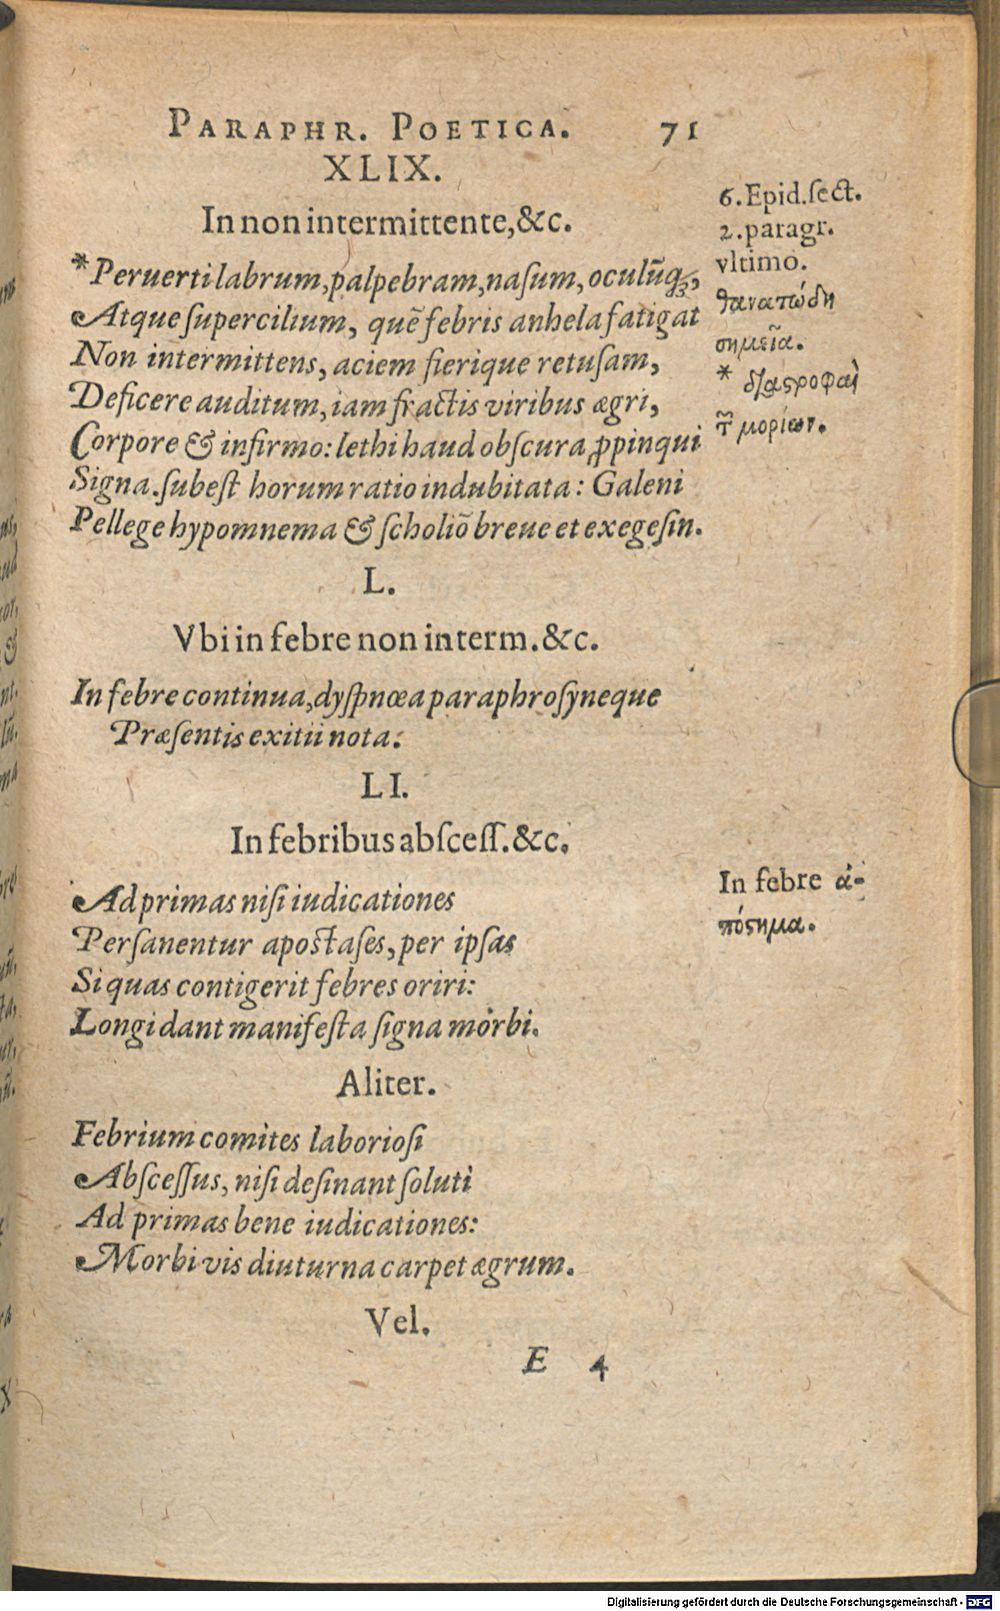 PARAPHR. POETICA. 71
XLIX.
In non intermittente, &c.
*Peruerti labrum, palpebram, nasum, oculũq;,
Atque supercilium, quẽ febris anhela fatigat
Non intermittens, aciem fierique retusam,
Deficere auditum, iam fractis viribus ægri,
Corpore & infirmo: lethi haud obscura ꝓpinqui
Signa. subest horum ratio indubitata: Galeni
Pellege hypomnema & scholiõ breue et exegesin.
6. Epid. sect.
2. paragr.
vltimo.
θανατώδη
σημεῖα.
* διαστροφαὶ
τ῀ μορίων.
L.
Vbi in febre non interm. &c.
In febre continua, dyspnœa paraphrosyneque
Præsentis exitii nota.
LI.
In febribus abscess. &c.
Ad primas nisi iudicationes
Persanentur apostases, per ipsas
Si quas contigerit febres oriri:
Longi dant manifesta signa morbi.
In febre ἀ-
πόστημα.
Aliter.
Febrium comites laboriosi
Abscessus, nisi desinant soluti
Ad primas bene iudicationes:
Morbi vis diuturna carpet ægrum.
Vel.
E 4
Digitalisierung gefördert durch die Deutsche Forschungsgemeinschaft - DFG